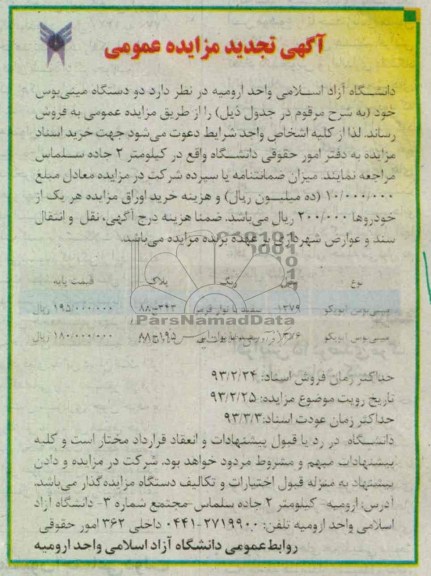 آگهی تجدید مزایده عمومی
دانشگاه آزاد اسلامی واحد ارومیه در نظر دارد دو دستگاه مینی‌بوس
خود (به شرح مرقوم در جدول ذیل) را از طریق مزایده عمومی به فروش
رساند. لذا از کلیه اشخاص واجد شرایط دعوت می‌شود جهت خرید اسناد
مزایده به دفتر امور حقوقی دانشگاه واقع در کیلومتر ۲ جاده سلماس
مراجعه نمایند. میزان ضمانتنامه یا سپرده شرکت در مزایده معادل مبلغ
۱۰/۰۰۰/۰۰۰ (ده میلیون ریال) و هزینه خرید اوراق مزایده هر یک از
خودروها ۲۰۰/۰۰۰ ریال می‌باشد. ضمنا هزینه درج آگهی، نقل و انتقال
سند و عوارض بعهده برنده مزایده می‌باشد.
نوع مدل رنگ پلاک قیمت پایه
مینی‌بوس ایویکو ۱۳۷۹ سفید با نوار قرمز ۱۹۵/۰۰۰/۰۰۰ ریال
مینی‌بوس ایویکو ۱۳۷۶ ۱۸۰/۰۰۰/۰۰۰ ریال
ParsNamadData
حداکثر زمان فروش اسناد: ۹۳/۲/۲۴
تاریخ رویت موضوع مزایده: ۹۳/۲/۲۵
حداکثر زمان عودت اسناد: ۹۳/۳/۳
دانشگاه در رد یا قبول پیشنهادات و انعقاد قرارداد مختار است و کلیه
پیشنهادات مبهم و مشروط مردود خواهد بود. شرکت در مزایده و دادن
پیشنهاد به منزله قبول اختیارات و تکالیف دستگاه مزایده‌گذار می‌باشد.
آدرس: ارومیه- کیلومتر ۲ جاده سلماس-مجتمع شماره ۳- دانشگاه آزاد
اسلامی واحد ارومیه تلفن: ۲۷۱۹۹۰۰-۰۴۴۱ داخلی ۳۶۲ امور حقوقی
روابط عمومی دانشگاه آزاد اسلامی واحد ارومیه